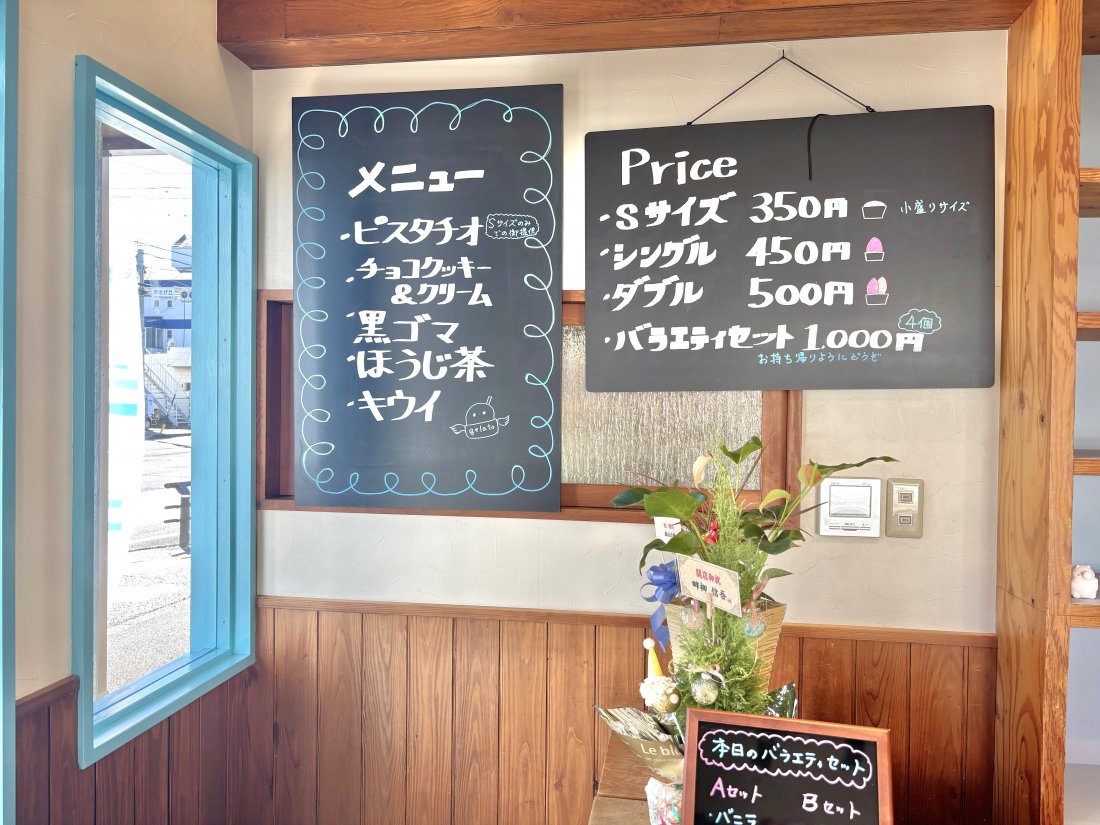 メニュー
・ピスタチオ
Sサイズのみ
での御提供
・チョコクッキー
&クリーム
・黒ゴマ
・ほうじ茶
・キウイ
gelato
Price
・Sサイズ 350円 小盛りサイズ
・シングル 450円
・ダブル 500円
・バラエティセット 1.000円
4個
お持ち帰りようにどうぞ
開店御祝
Le
本日のバラエティセット
Aセット Bセット
・バニラ